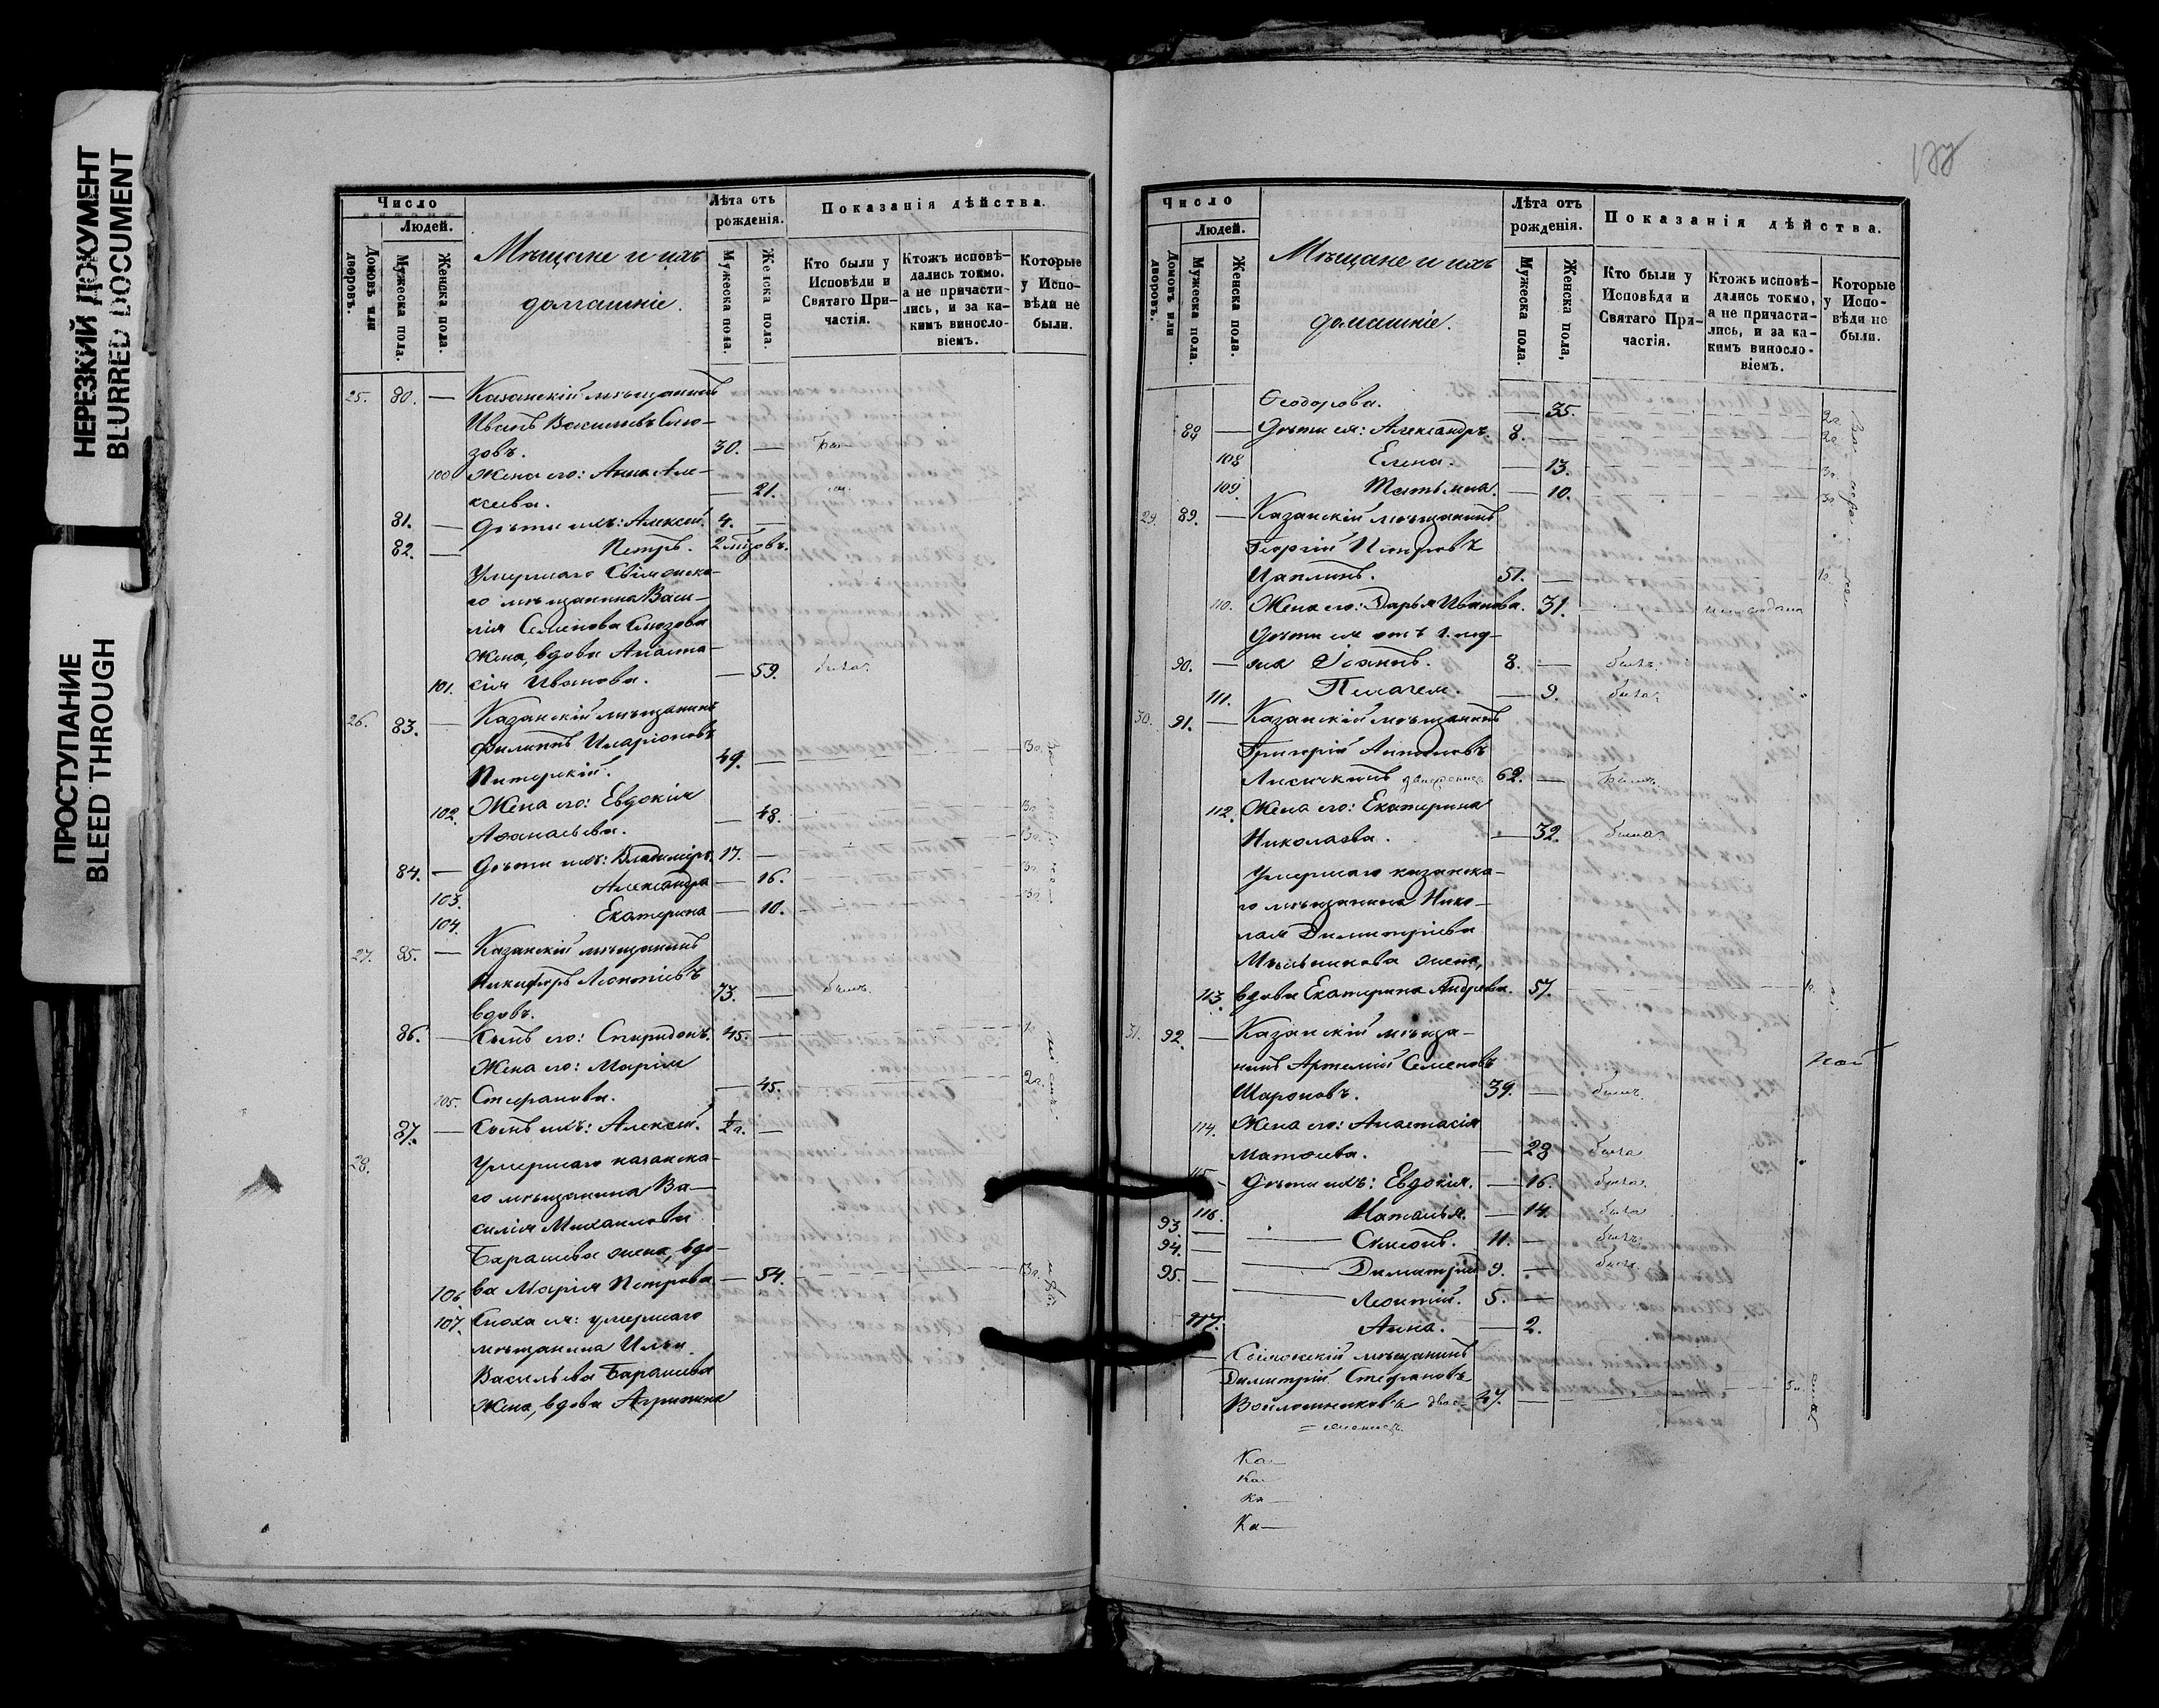 НЕРЕЗКИЙ ДОКУМЕНТ
BLURRED DOCUMENT
ПРОСТУПАНИЕ
BLEED THROUGH
Число
Людей.
Домовъ или дворовъ.
Мужеска пола.
Женска пола.
Мѣщане и ихъ
домашніе.
Лѣта отъ рожденія.
Мужеска пола.
Женска пола.
Показанія дѣйства.
Кто были у Исповѣди и Святаго Причастія.
Ктожъ исповѣдались токмо, а не причастились, и за какимъ винословіемъ.
Которые у Исповѣди не были.
25. 80. — Казанскій мѣщанинъ
Иванъ Васильевъ Слю-
зовъ. 30. —
100 Жена его: Анна Але-
ксѣева. — 21.
81. — Дѣти ихъ: Алексѣй. 4. —
82. — Петръ. 2
Умершаго Свіяжска-
го мѣщанина Васи-
лія Семенова Слюзова
жена, вдова Анаста-
101. сія Иванова. — 59. была
26. 83. — Казанскій мѣщанинъ
Филиппъ Иларіоновъ
Питерскій. 49. — 3г.
102. Жена его: Евдокія
Аѳанасьева. — 48. 3г.
84. — Дѣти ихъ: Владиміръ. 17. — 3г.
103. Александра — 16. 3г.
104. Екатерина — 10. 3г.
27. 85. — Казанскій мѣщанинъ
Никифоръ Леонтіевъ
вдовъ. 73. — былъ
86. — Сынъ его: Спиридонъ. 45. — 1г.
Жена его: Марія
105. Стефанова. — 45. 2г.
87. — Сынъ ихъ: Алексѣй. ½ г. —
28. Умершаго казанска-
го мѣщанина Ва-
силія Михаилова
Барашева жена, вдо-
106 ва Марія Петрова — 54. 3г.
107. Сноха ея: умершаго
мѣщанина Ильи
Васильева Барашева
жена, вдова Агрипина
Число
Людей.
Домовъ или дворовъ.
Мужеска пола.
Женска пола.
Мѣщане и ихъ
домашніе.
Лѣта отъ рожденія.
Мужеска пола.
Женска пола,
Показанія дѣйства.
Кто были у Исповѣди и Святаго Причастія.
Ктожъ исповѣдались токмо, а не причастились, и за какимъ винословіемъ.
Которые у Исповѣди не были.
Ѳеодорова. — 35. 2г.
88 — Дѣти ея: Александръ. 8. — 2г.
108 Елена. — 13. 3г.
109. Татьяна. — 10. 3г.
29. 89. — Казанскій мѣщанинъ
Георгій Петровъ
Цаплинъ. 51. — 1г.
110. Жена его: Дарья Иванова. 31.
Дѣти ея отъ 1. му-
90. — жа Іоаннъ. 8. — былъ.
111. Пелагея. — 9. была
30. 91. — Казанскій мѣщанинъ
Григорій Антоновъ
Лисичкинъ 62. — былъ
112. Жена его: Екатерина
Николаева. — 32. была
Умершаго казанска-
го мѣщанина Нико-
лая Димитріева
Мыльникова жена,
113. вдова Екатерина Андреева. 57. 1г.
31. 92. — Казанскій мѣща-
нинъ Артемій Семеновъ
Шароновъ. 39. — былъ.
114. Жена его: Анастасія
Матѳеева. — 28 была
115 Дѣти ихъ: Евдокія. — 16. была.
116. Наталья. — 14. была
93. — Симеонъ. 11. — былъ
94. — Димитрій 9. — былъ.
95. — Леонтій. 5. —
117. Анна. — 2.
— Свіяжскій мѣщанинъ
Димитрій Стефановъ
Войлошниковъ 47. —
Ка—
Ка—
Ка—
Ка—